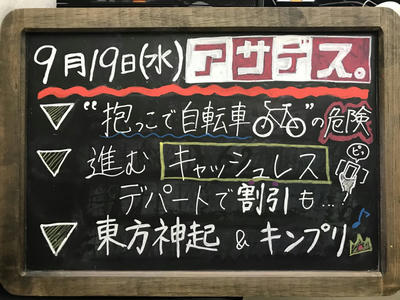 9月19日(水) アサデス。
▽ "抱っこで自転車"の危険
▽ 進む キャッシュレス ピッ
デパートで割引も…?
▽ 東方神起 & キンプリ♪